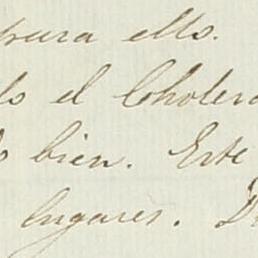 para ello.
do el Cholera
bien. Este
lugares.